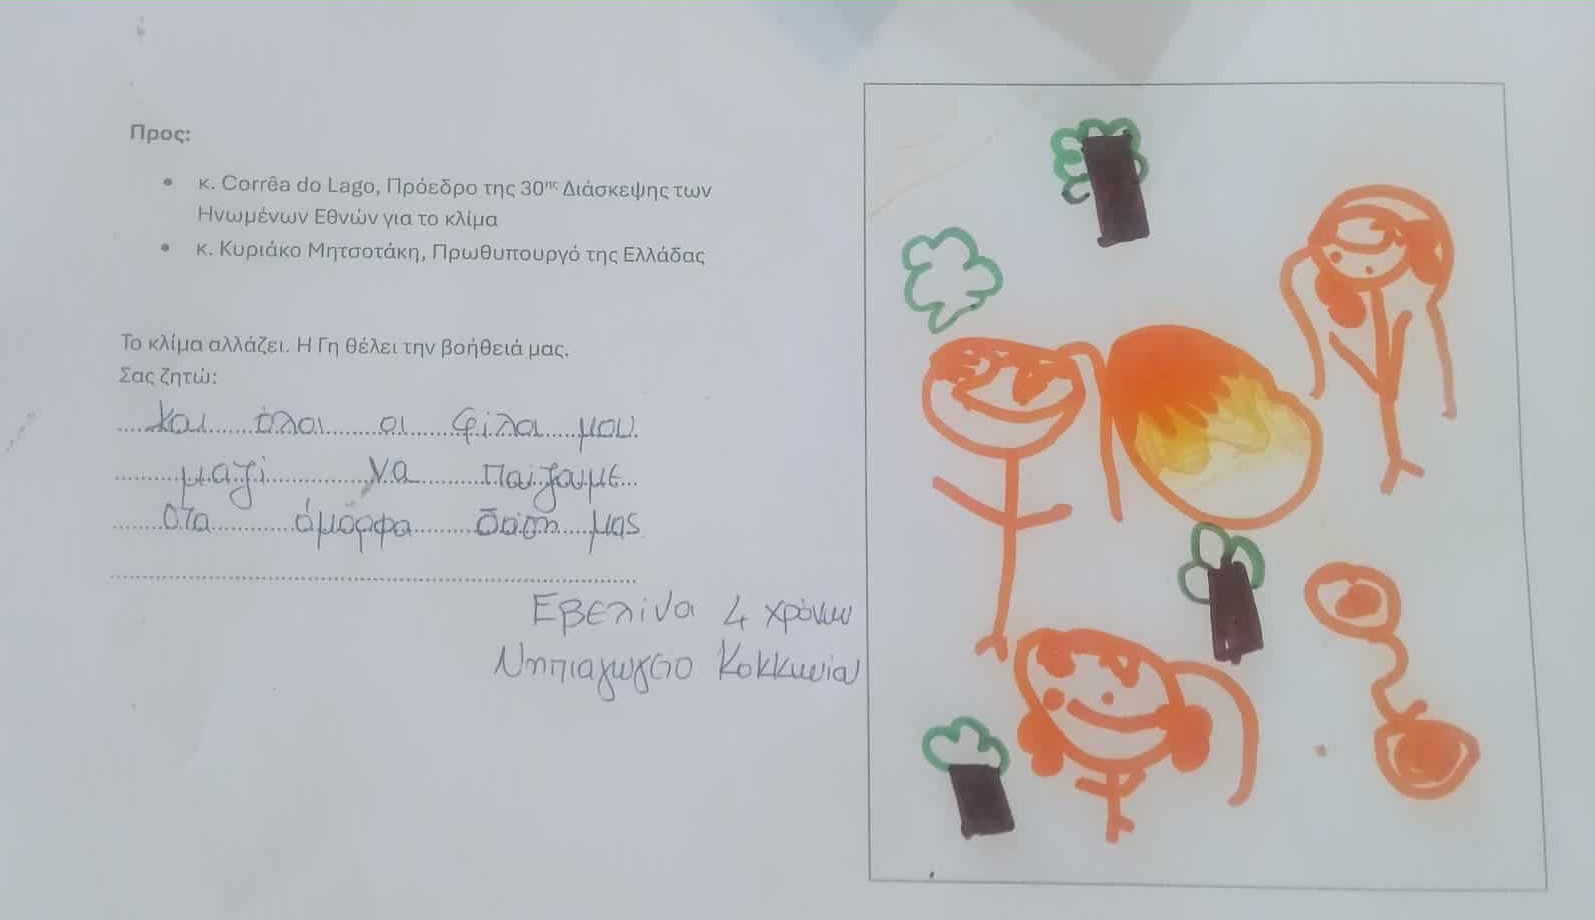 Προς:
• κ. Corrêa do Lago, Πρόεδρο της 30ης Διάσκεψης των
Ηνωμένων Εθνών για το κλίμα
• κ. Κυριάκο Μητσοτάκη, Πρωθυπουργό της Ελλάδας
Το κλίμα αλλάζει. Η Γη θέλει την βοήθειά μας.
Σας ζητώ:
και όλοι οι φίλοι μου
μαζί να παίζουμε
στα όμορφα δάση μας
Εβελίνα 4 χρόνων
Νηπιαγωγείο Κοκκωνία